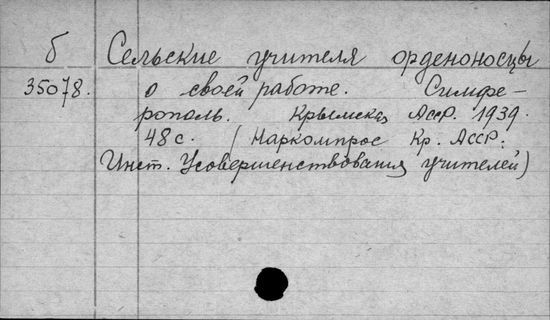 б Сельские учителя орденоносцы
35078. о своей работе. Симфе-
рополь. Крымская АССР. 1939.
48 с. (Наркомпрос Кр. АССР.
Инст. Усовершенствования учителей)